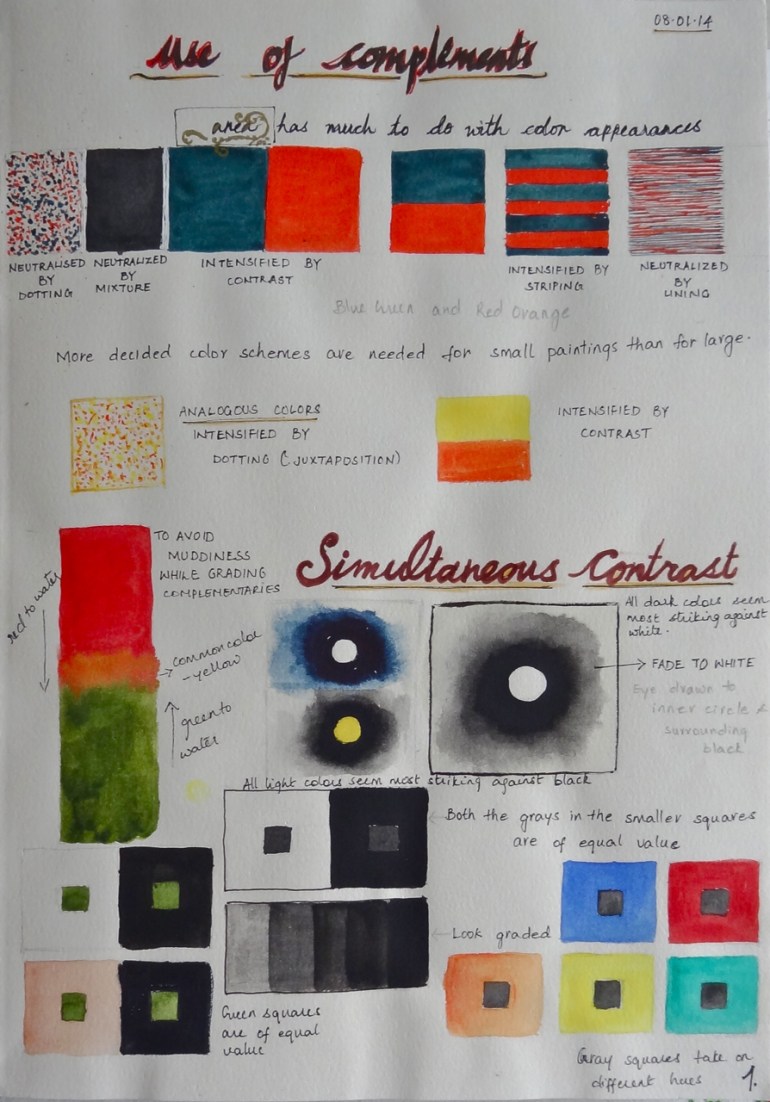 08.01.14
Use of complements
area has much to do with color appearances
NEUTRALISED
BY
DOTTING
NEUTRALIZED
BY
MIXTURE
INTENSIFIED BY
CONTRAST
INTENSIFIED BY
STRIPING
NEUTRALIZED
BY
LINING
Blue Green and Red Orange
More decided color schemes are needed for small paintings than for large.
ANALOGOUS COLORS
INTENSIFIED BY
DOTTING (JUXTAPOSITION)
INTENSIFIED BY
CONTRAST
TO AVOID
MUDDINESS
WHILE GRADING
COMPLEMENTARIES
red to water
common color
- yellow
green to
water
Simultaneous Contrast
All dark colors seem
most striking against
white.
FADE TO WHITE
Eye drawn to
inner circle &
surrounding
black
All light colors seem most striking against black
Both the grays in the smaller squares
are of equal value
Look graded
Green squares
are of equal
value
Gray squares take on
different hues
1.